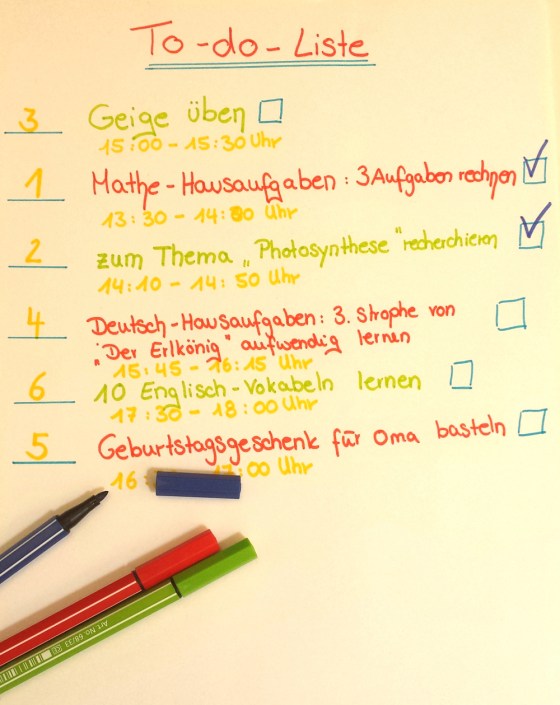 To-do-Liste
3 Geige üben
15:00 - 15:30 Uhr
1 Mathe-Hausaufgaben: 3 Aufgaben rechnen
13:30 - 14:00 Uhr
2 zum Thema „Photosynthese" recherchieren
14:10 - 14:50 Uhr
4 Deutsch-Hausaufgaben: 3. Strophe von
"Der Erlkönig" aufwendig lernen
15:45 - 16:15 Uhr
6 10 Englisch-Vokabeln lernen
17:30 - 18:00 Uhr
5 Geburtstagsgeschenk für Oma basteln
16 17:00 Uhr
Art. No. 68/33